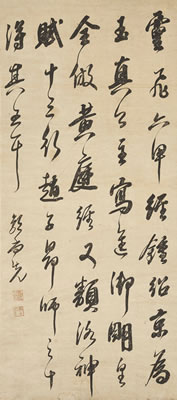 靈飛六甲經鍾紹京為
玉真公主寫進御明皇
全倣黃庭經又類洛神
賦十三行趙子昂師之十
得其五耳